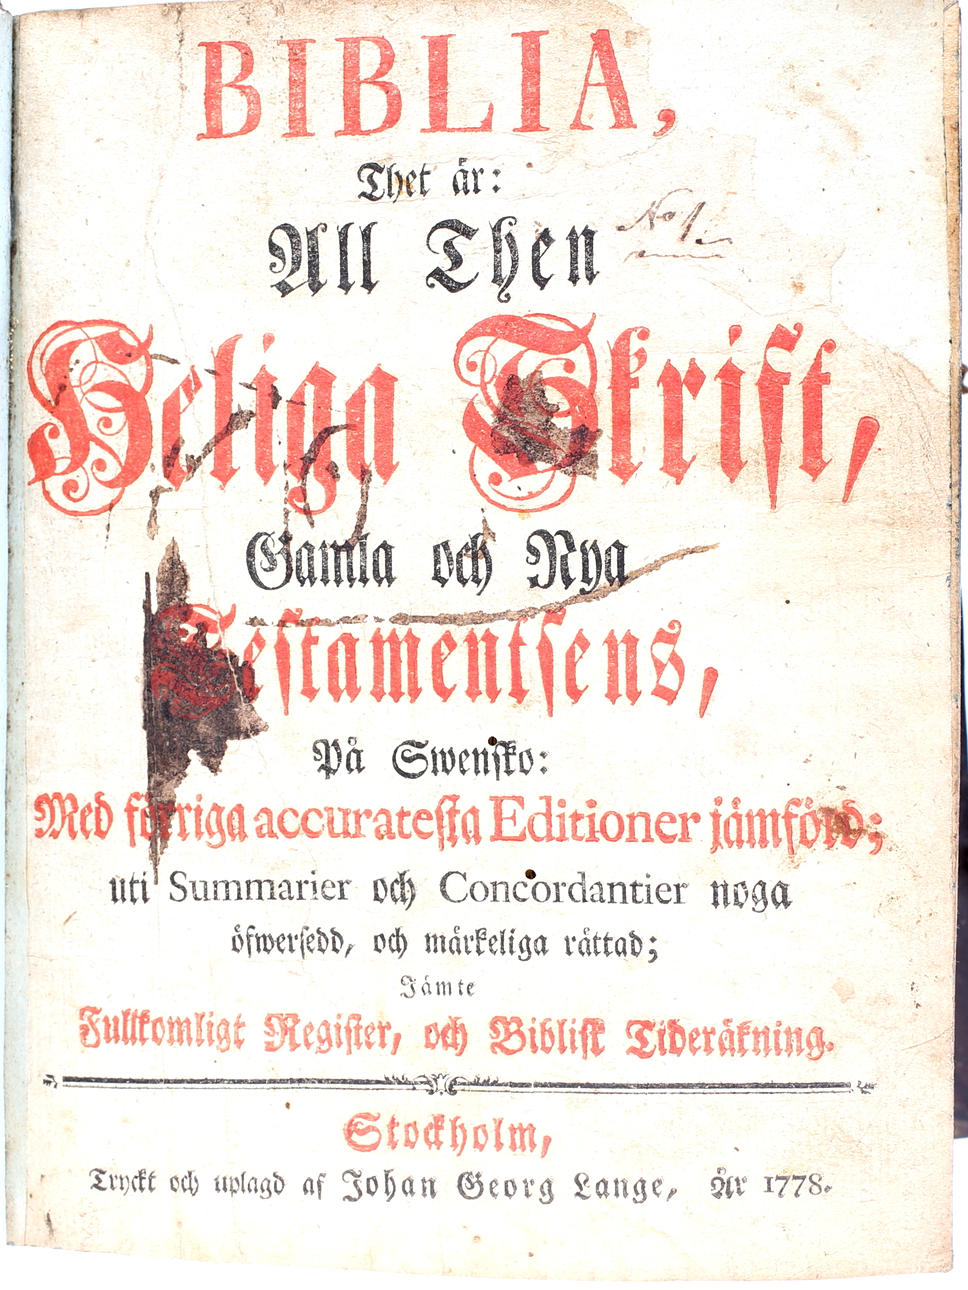 BIBLIA,
Thet är:
All Then
Heliga Skrift,
Gamla och Nya
Testamentsens,
På Swensko:
Med förriga accuratesta Editioner jämförd;
uti Summarier och Concordantier noga
öfwersedd, och märkeliga rättad;
Jämte
Fullkomligt Register, och Biblisk Tideräkning.
Stockholm,
Tryckt och uplagd af Johan Georg Lange, År 1778.